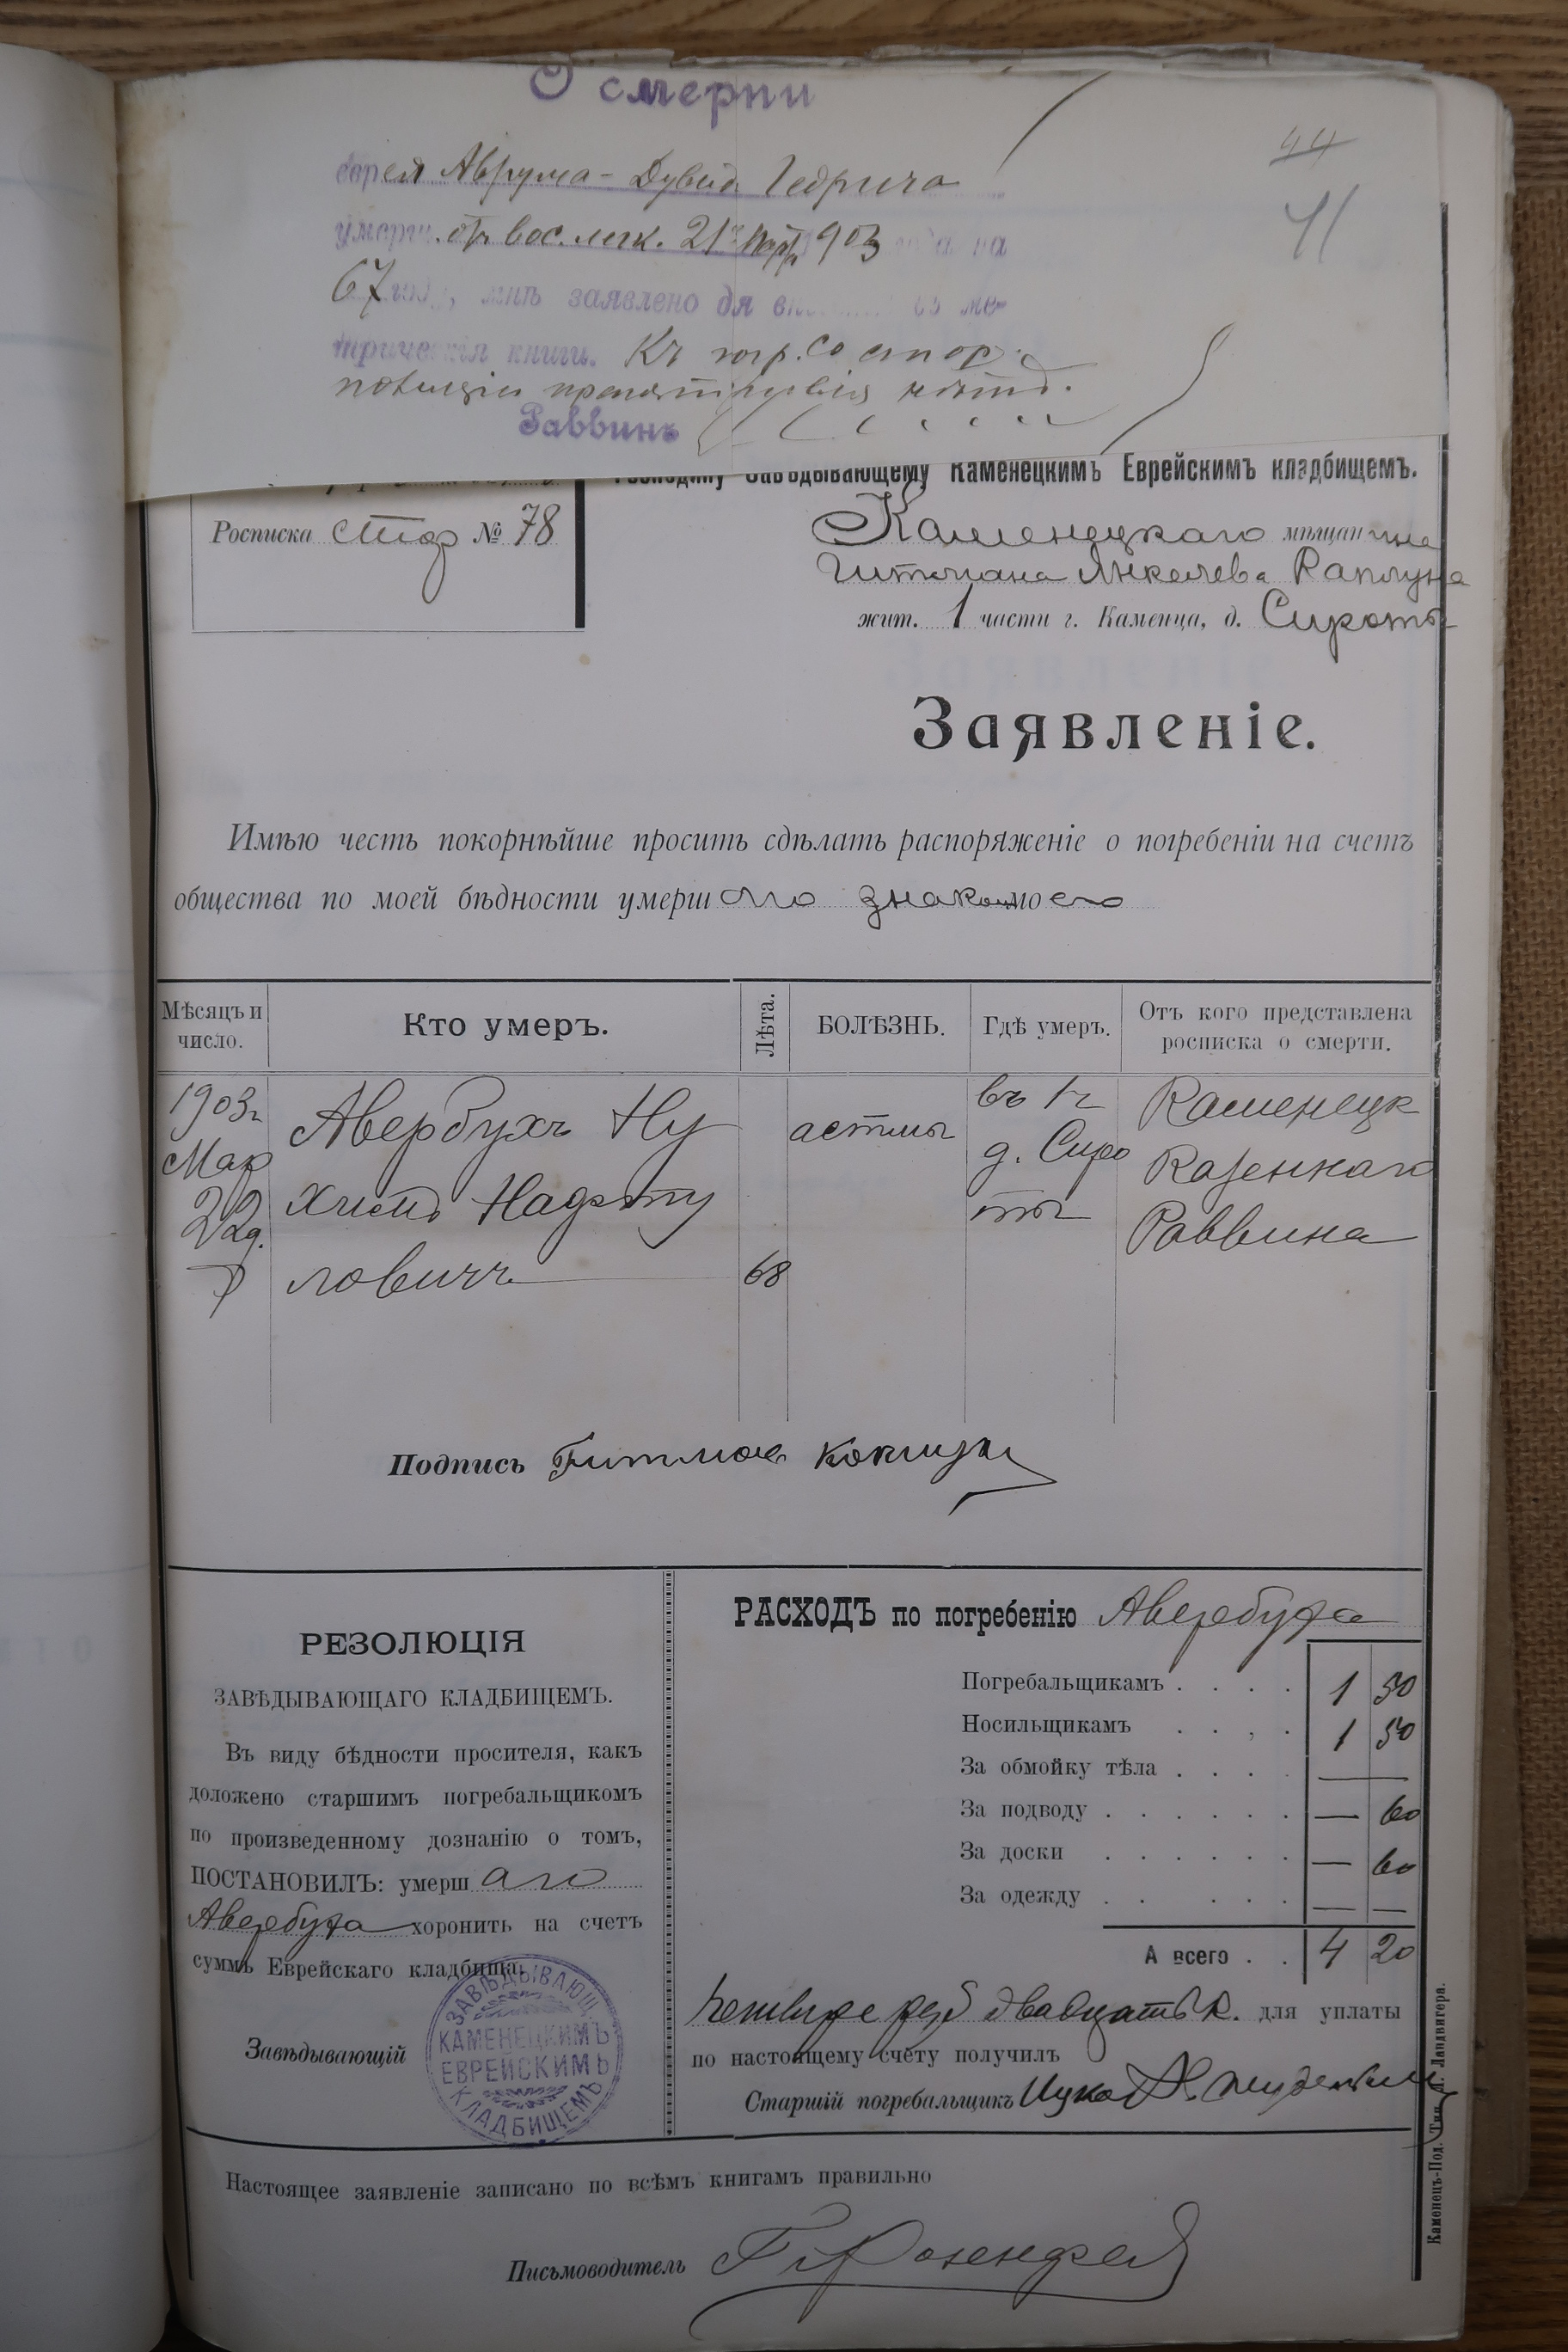 О смерти
еврея Аврума-Дувид Гедрича
умерш. от вос. легк. 21го Марта 903 на
67 году, мнѣ заявлено дя вне въ ме-
трическія книги. Къ погр. со стор.
полиціи препятствія нѣтъ.
Раввинъ
44
41
Господину Завѣдывающему Каменецкимъ Еврейскимъ кладбищемъ.
Росписка № 78
Каменецкаго мѣщанина
Янкелева Каплуна
жит. 1 части г. Каменца, д. Сироты
Заявленіе.
Имѣю честь покорнѣйше просить сдѣлать распоряженіе о погребеніи на счетъ
общества по моей бѣдности умершаго знакомого
Мѣсяцъ и число.
Кто умеръ.
Лѣта.
БОЛѢЗНЬ.
Гдѣ умеръ.
Отъ кого представлена росписка о смерти.
1903г
Мар
22д.
Авербухъ Ну
химъ Нафту
ловичъ
68
астмы
въ 1ч
д. Сиро
ты
Каменецк
Казеннаго
Раввина
Подпись
РЕЗОЛЮЦІЯ
ЗАВѢДЫВАЮЩАГО КЛАДБИЩЕМЪ.
Въ виду бѣдности просителя, какъ
доложено старшимъ погребальщикомъ
по произведенному дознанію о томъ,
ПОСТАНОВИЛЪ: умершаго
Авербуха хоронить на счетъ
суммъ Еврейскаго кладбища.
Завѣдывающій
ЗАВѢДЫВАЮЩ.
КАМЕНЕЦКИМЪ
ЕВРЕЙСКИМЪ
КЛАДБИЩЕМЪ
РАСХОДЪ по погребенію Авербуха
Погребальщикамъ . . . . 1 50
Носильщикамъ . . , . 1 50
За обмойку тѣла . . . . —
За подводу . . . . . . — 60
За доски . . . . . . — 60
За одежду . . . . . — —
А всего . . 4 20
Четыре руб двадцать к. для уплаты
по настоящему счету получилъ
Старшій погребальщикъ
Настоящее заявленіе записано по всѣмъ книгамъ правильно
Письмоводитель Розенфельд
Каменецъ-Под. Тип. Д. Ландвигера.